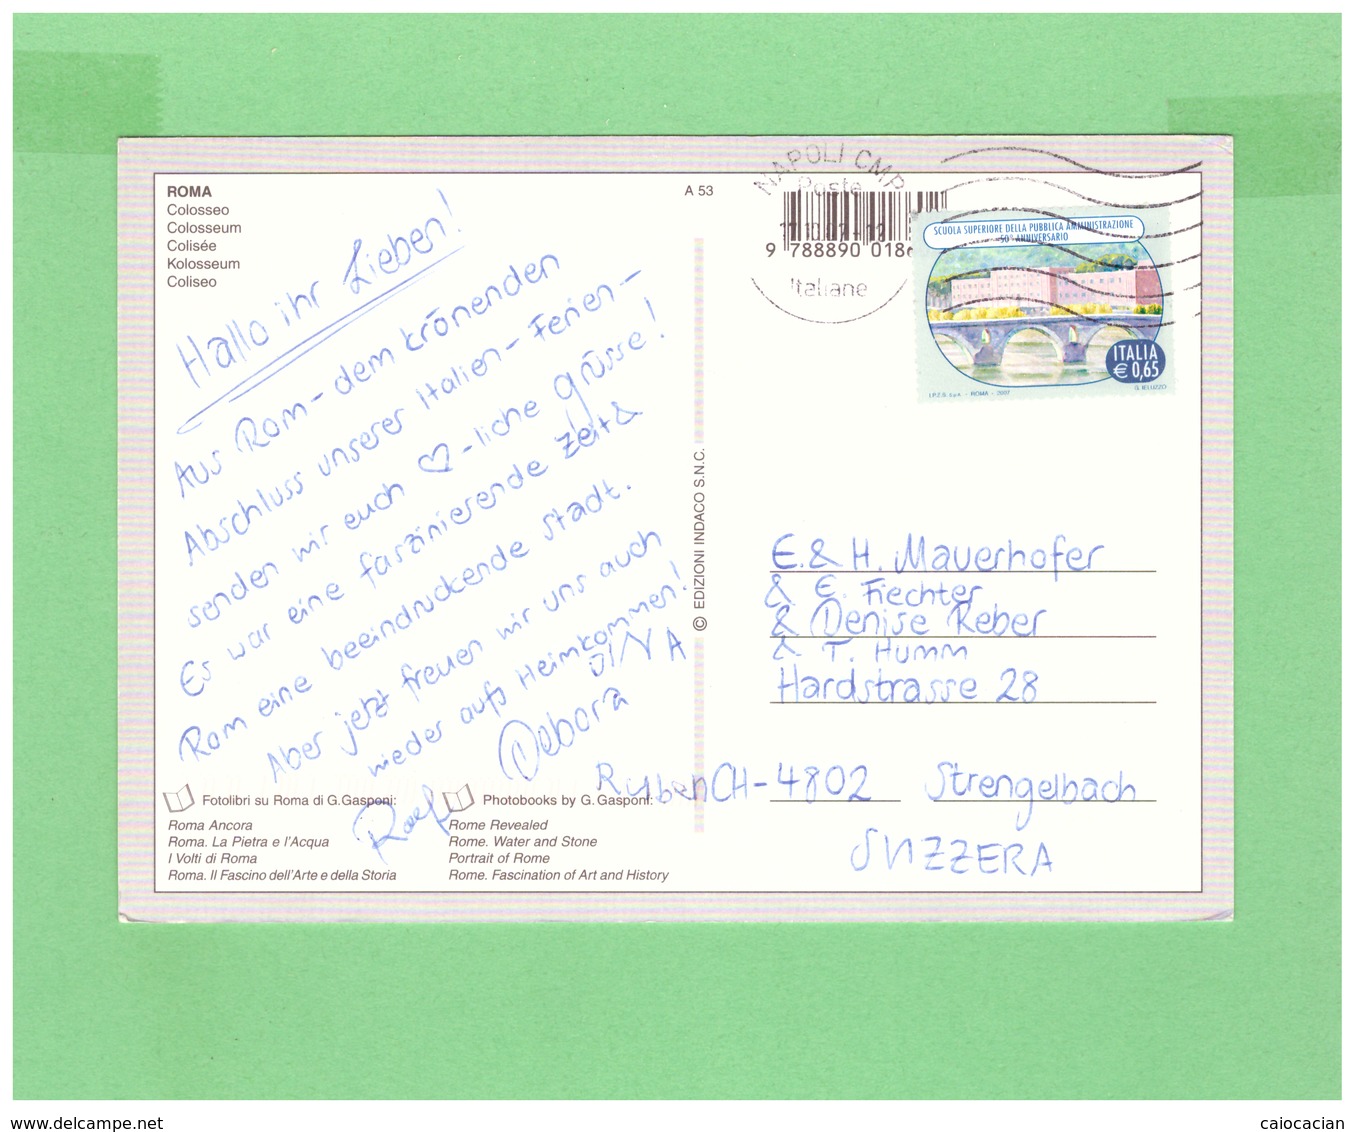 ROMA
Colosseo
Colosseum
Colisée
Kolosseum
Coliseo
A 53
Hallo ihr Lieben!
Aus Rom - dem krönenden
Abschluss unserer Italien-Ferien-
senden wir euch ♡-liche grüsse!
Es war eine faszinierende Zeit &
Rom eine beeindruckende Stadt.
Aber jetzt freuen wir uns auch
wieder aufs Heimkommen!
JINA
Debora
Ruben
Raef
Fotolibri su Roma di G.Gasponi:
Roma Ancora
Roma. La Pietra e l'Acqua
I Volti di Roma
Roma. Il Fascino dell'Arte e della Storia
Photobooks by G. Gasponi:
Rome Revealed
Rome. Water and Stone
Portrait of Rome
Rome. Fascination of Art and History
© EDIZIONI INDACO S.N.C.
NAPOLI CMP
Poste
Italiane
9 788890 018
SCUOLA SUPERIORE DELLA PUBBLICA AMMINISTRAZIONE
50° ANNIVERSARIO
ITALIA
€ 0,65
I.P.Z.S. S.p.A. - ROMA - 2007
E. & H. Mauerhofer
& E. Fiechter
& Denise Reber
& T. Humm
Hardstrasse 28
CH-4802 Strengelbach
SVIZZERA
www.delcampe.net
caiocacian